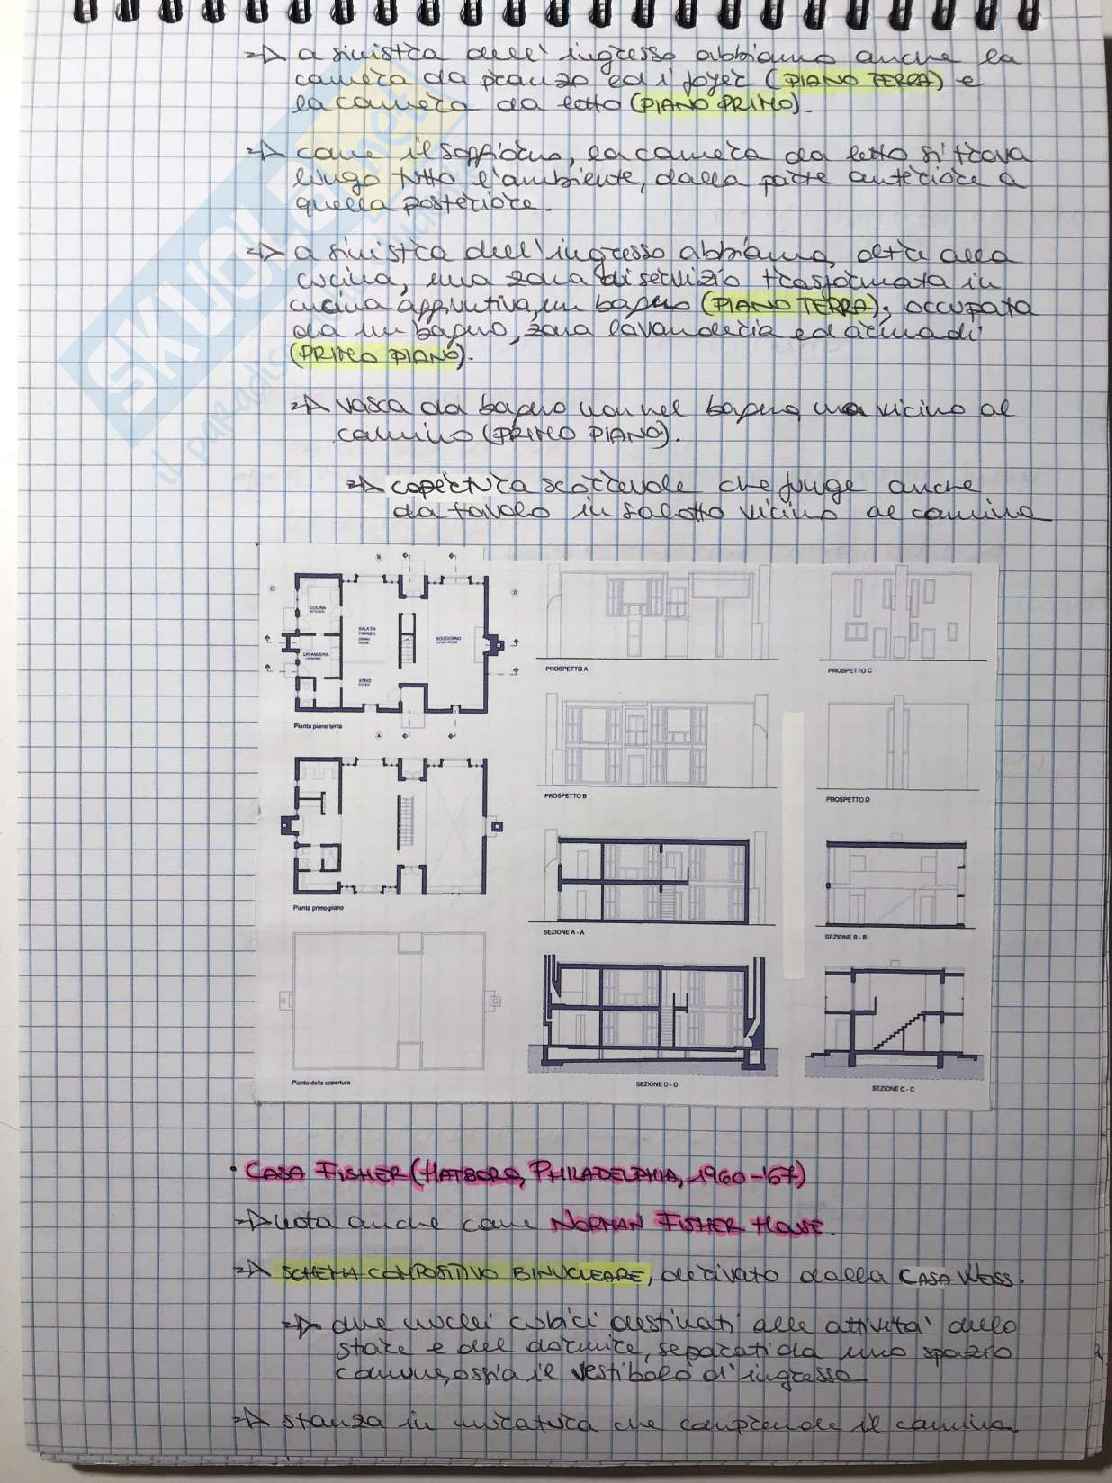 a sinistra dell'ingresso abbiamo anche la
camera da pranzo ed il foyer (PIANO TERRA) e
la camera da letto (PIANO PRIMO).
come il soggiorno, la camera da letto si trova
lungo tutto l'ambiente, dalla parte anteriore a
quella posteriore.
a sinistra dell'ingresso abbiamo, oltre alla
cucina, una zona di servizio trasformata in
cucina aggiuntiva, un bagno (PIANO TERRA), occupata
da un bagno, zona lavanderia ed armadi
(PRIMO PIANO).
vasca da bagno non nel bagno, ma vicino al
camino (PRIMO PIANO).
copertura scorrevole che funge anche
da tavolo in salotto vicino al camino
SKUOLA.net
il paradiso
CUCINA
SALA DA PRANZO
SOGGIORNO
LAVANDERIA
Pianta piano terra
PROSPETTO A
PROSPETTO C
PROSPETTO B
PROSPETTO D
Pianta primo piano
SEZIONE A - A
SEZIONE B - B
Pianta della copertura
SEZIONE D - D
SEZIONE C - C
• CASA FISHER (HATBORO, PHILADELPHIA, 1960-'67)
nota anche come NORMAN FISHER HOUSE.
SCHEMA COMPOSITIVO BINUCLEARE, derivato dalla CASA WEISS.
due nuclei cubici destinati alle attività dello
stare e del dormire, separati da uno spazio
comune, ossia il vestibolo d'ingresso
stanza in muratura che comprende il camino.